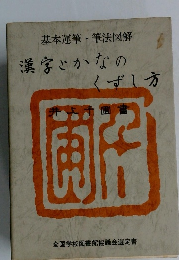 基本運筆・筆法図解
漢字とかなの
くずし方
全国学校図書館協議会選定書